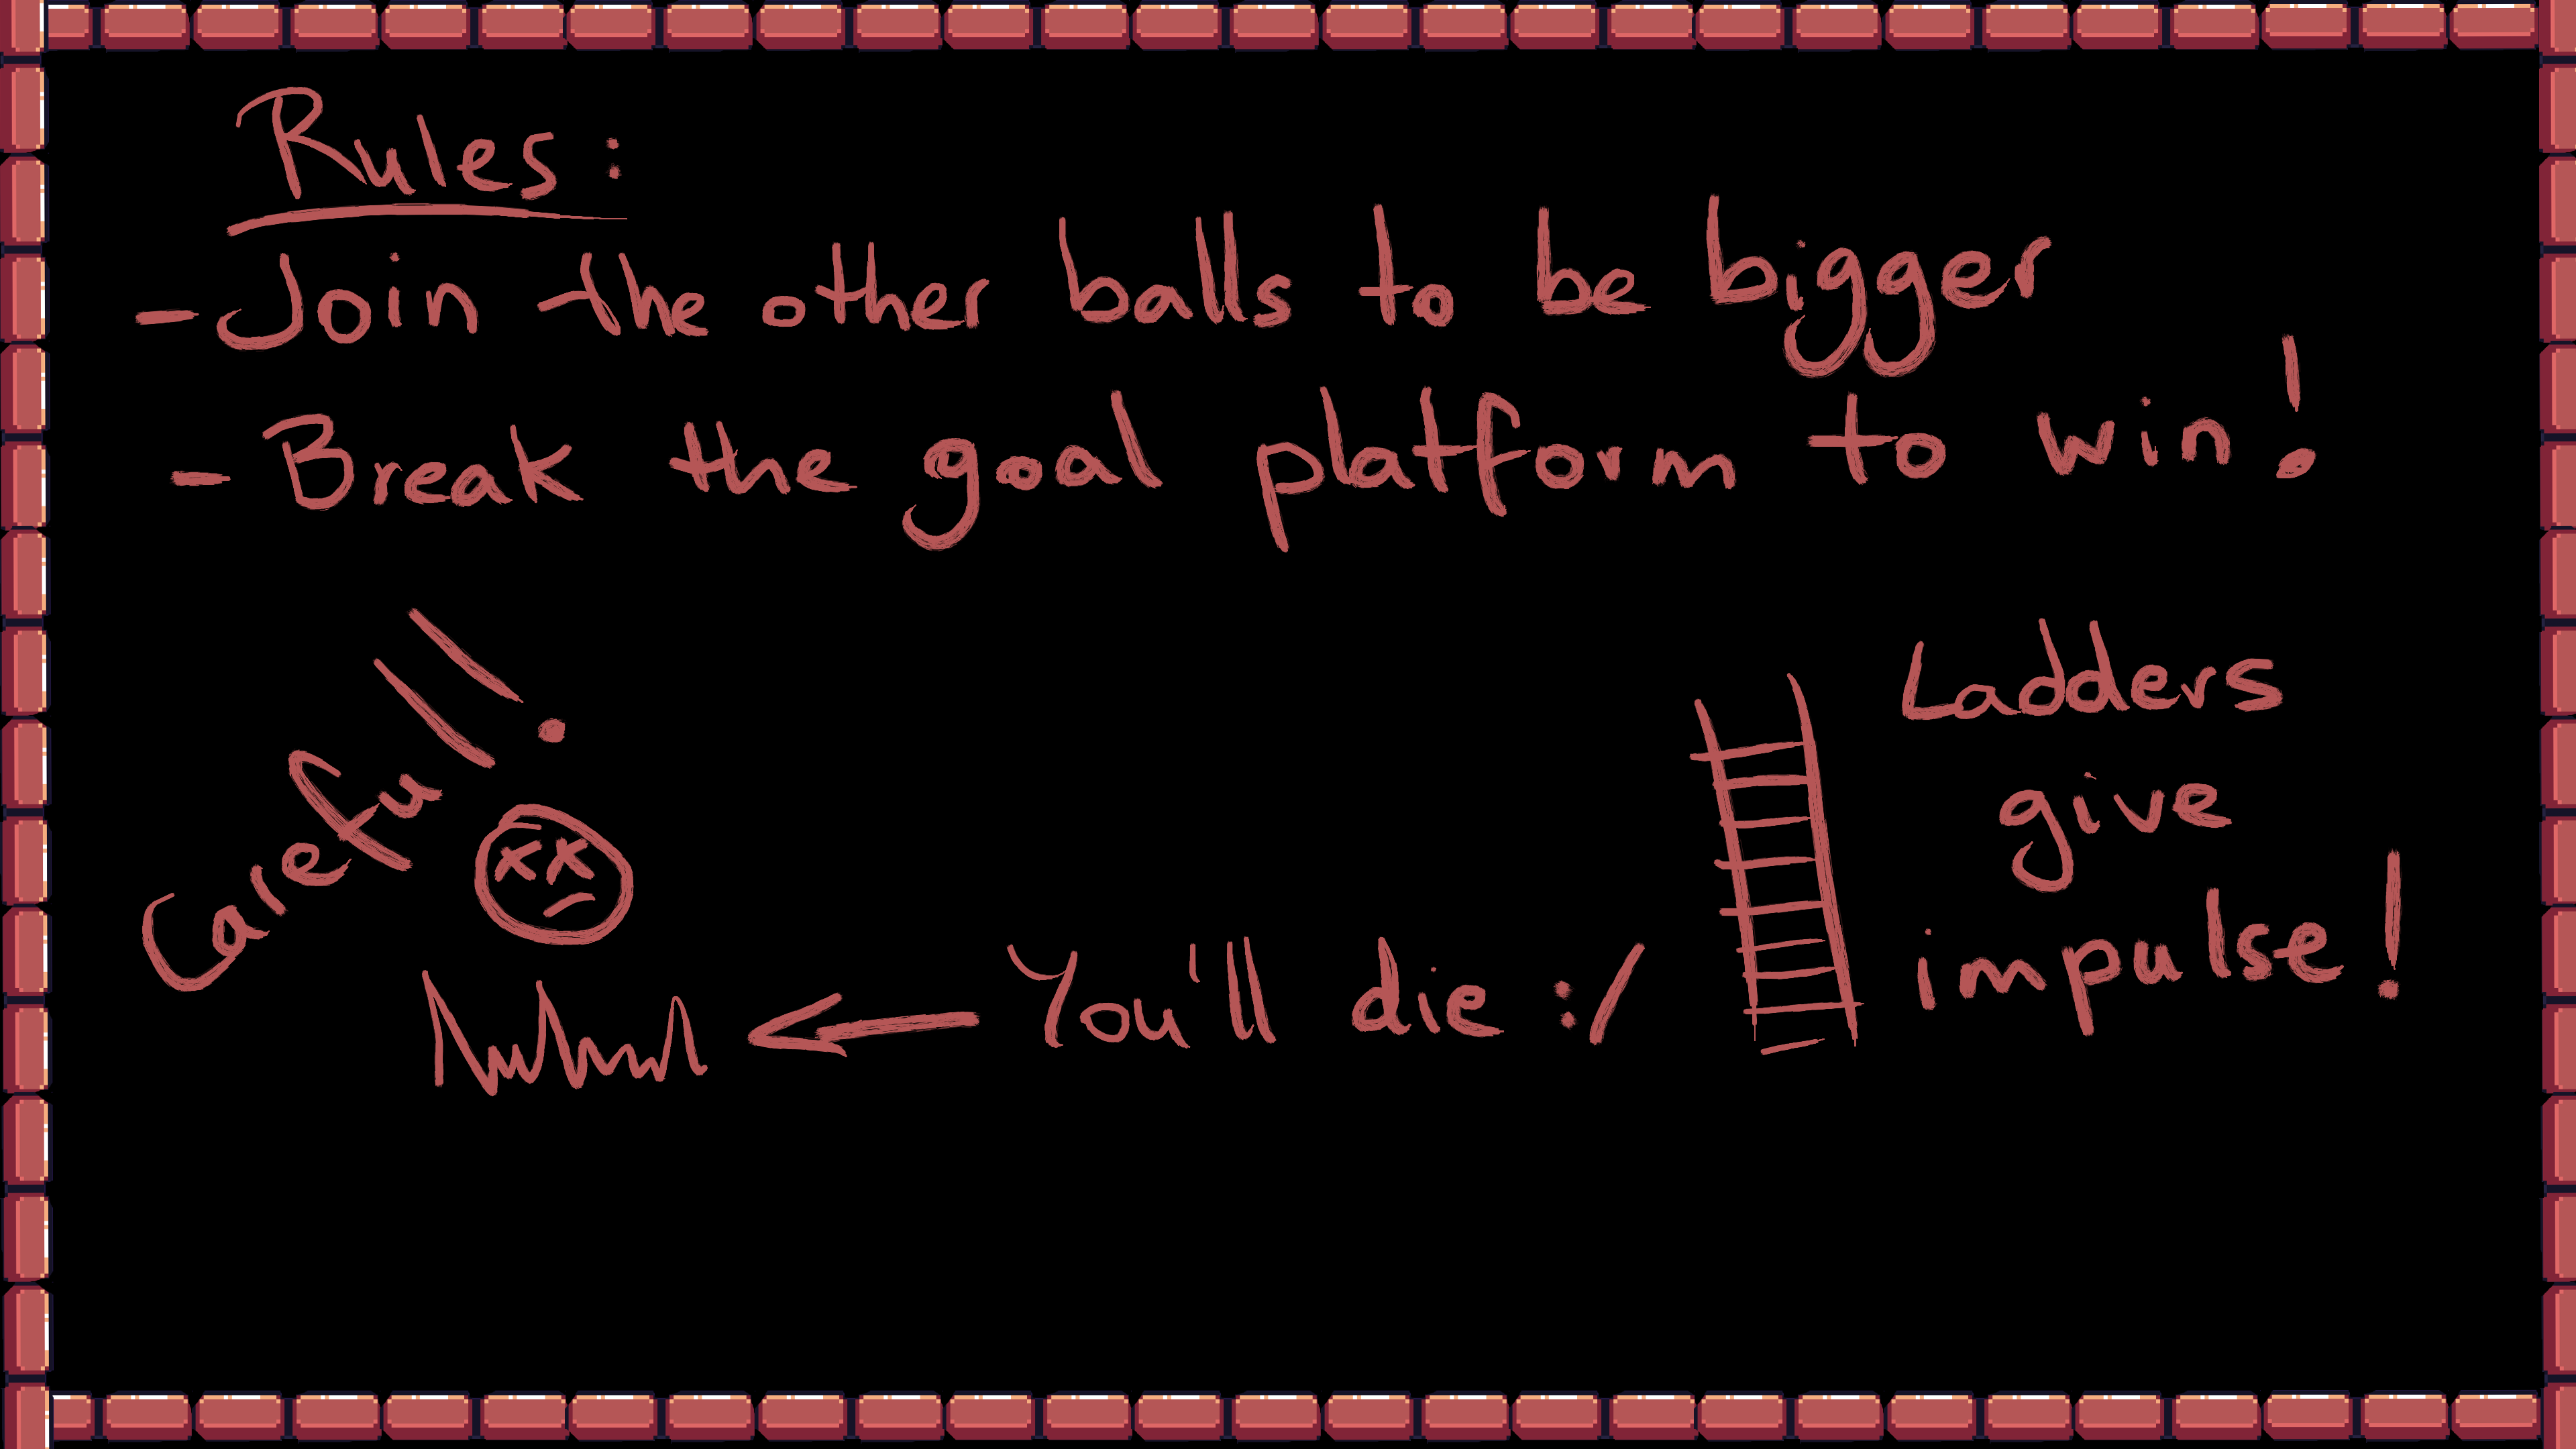 Rules:
- Join the other balls to be bigger
- Break the goal platform to win!
Careful!
You'll die :/
Ladders
give
impulse!